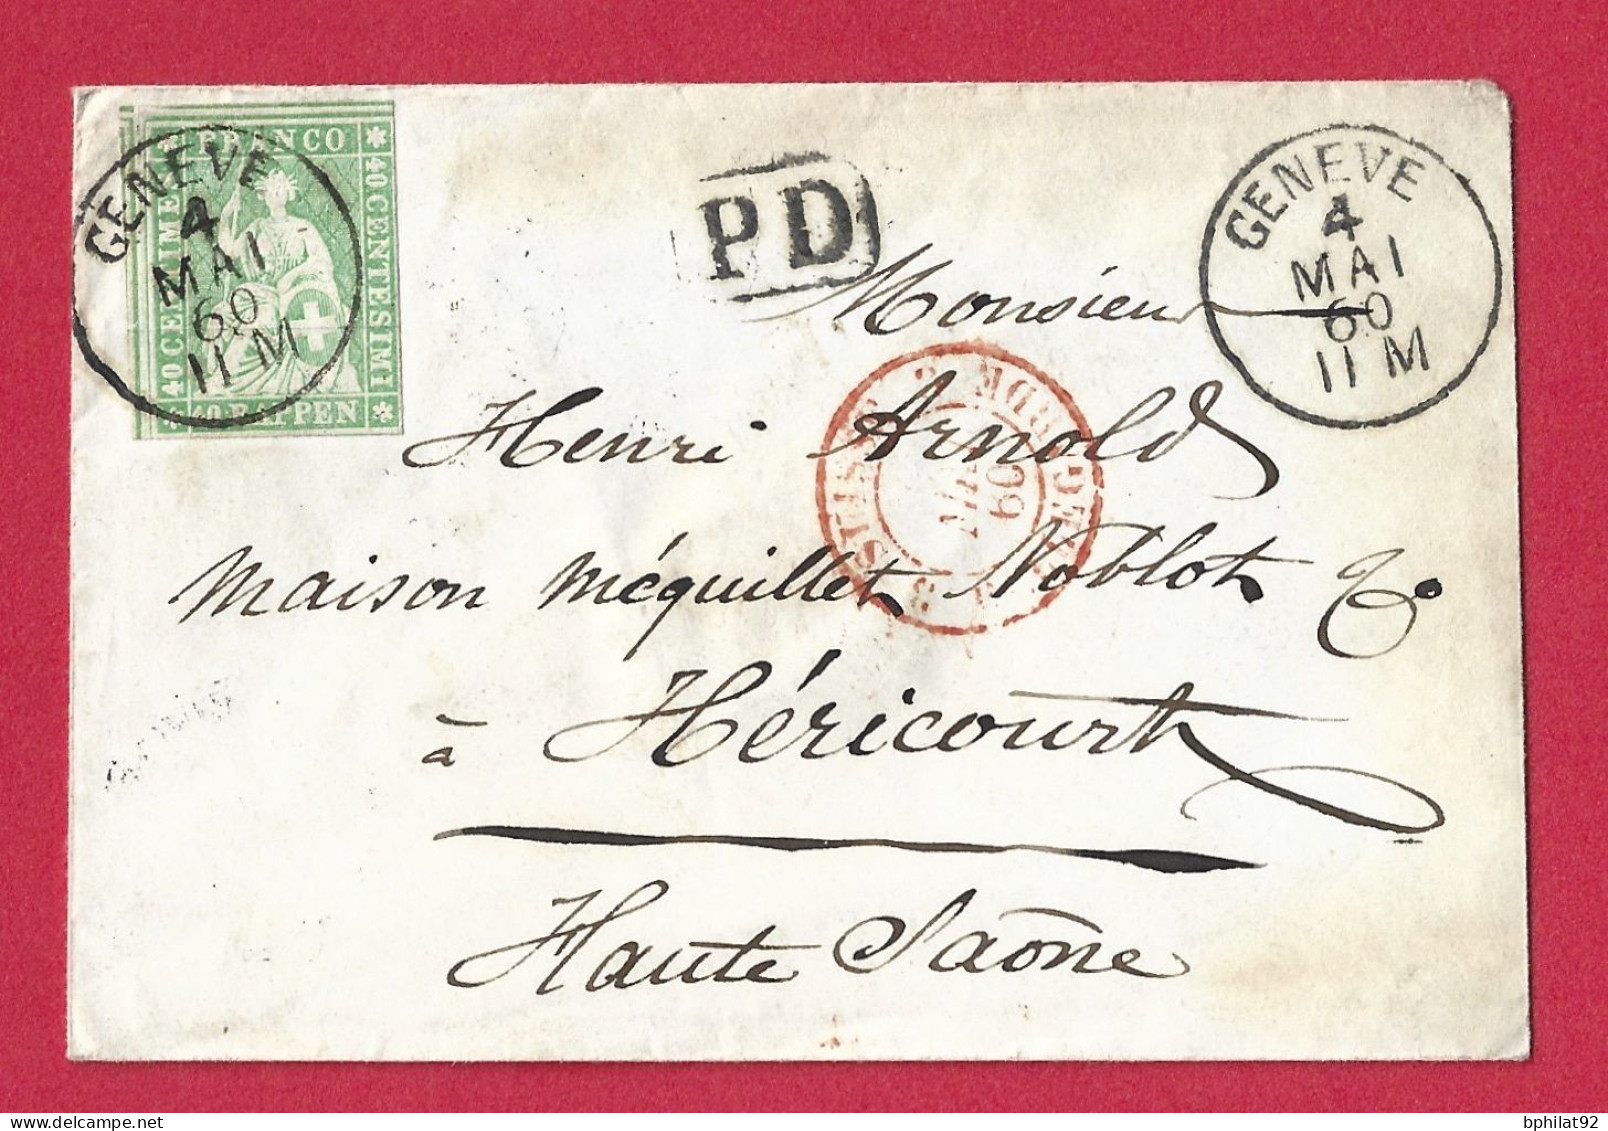 FRANCO
40 CENTIMES
40 CENTESIMI
40 RAPPEN
GENEVE
4
MAI
60
11 M
PD
GENEVE
4
MAI
60
11 M
Monsieur
Henri Arnold
SUISSE
MAI
60
3
Maison Méquillet Noblot & Co
à Héricourt
Haute Saône
bphilat92